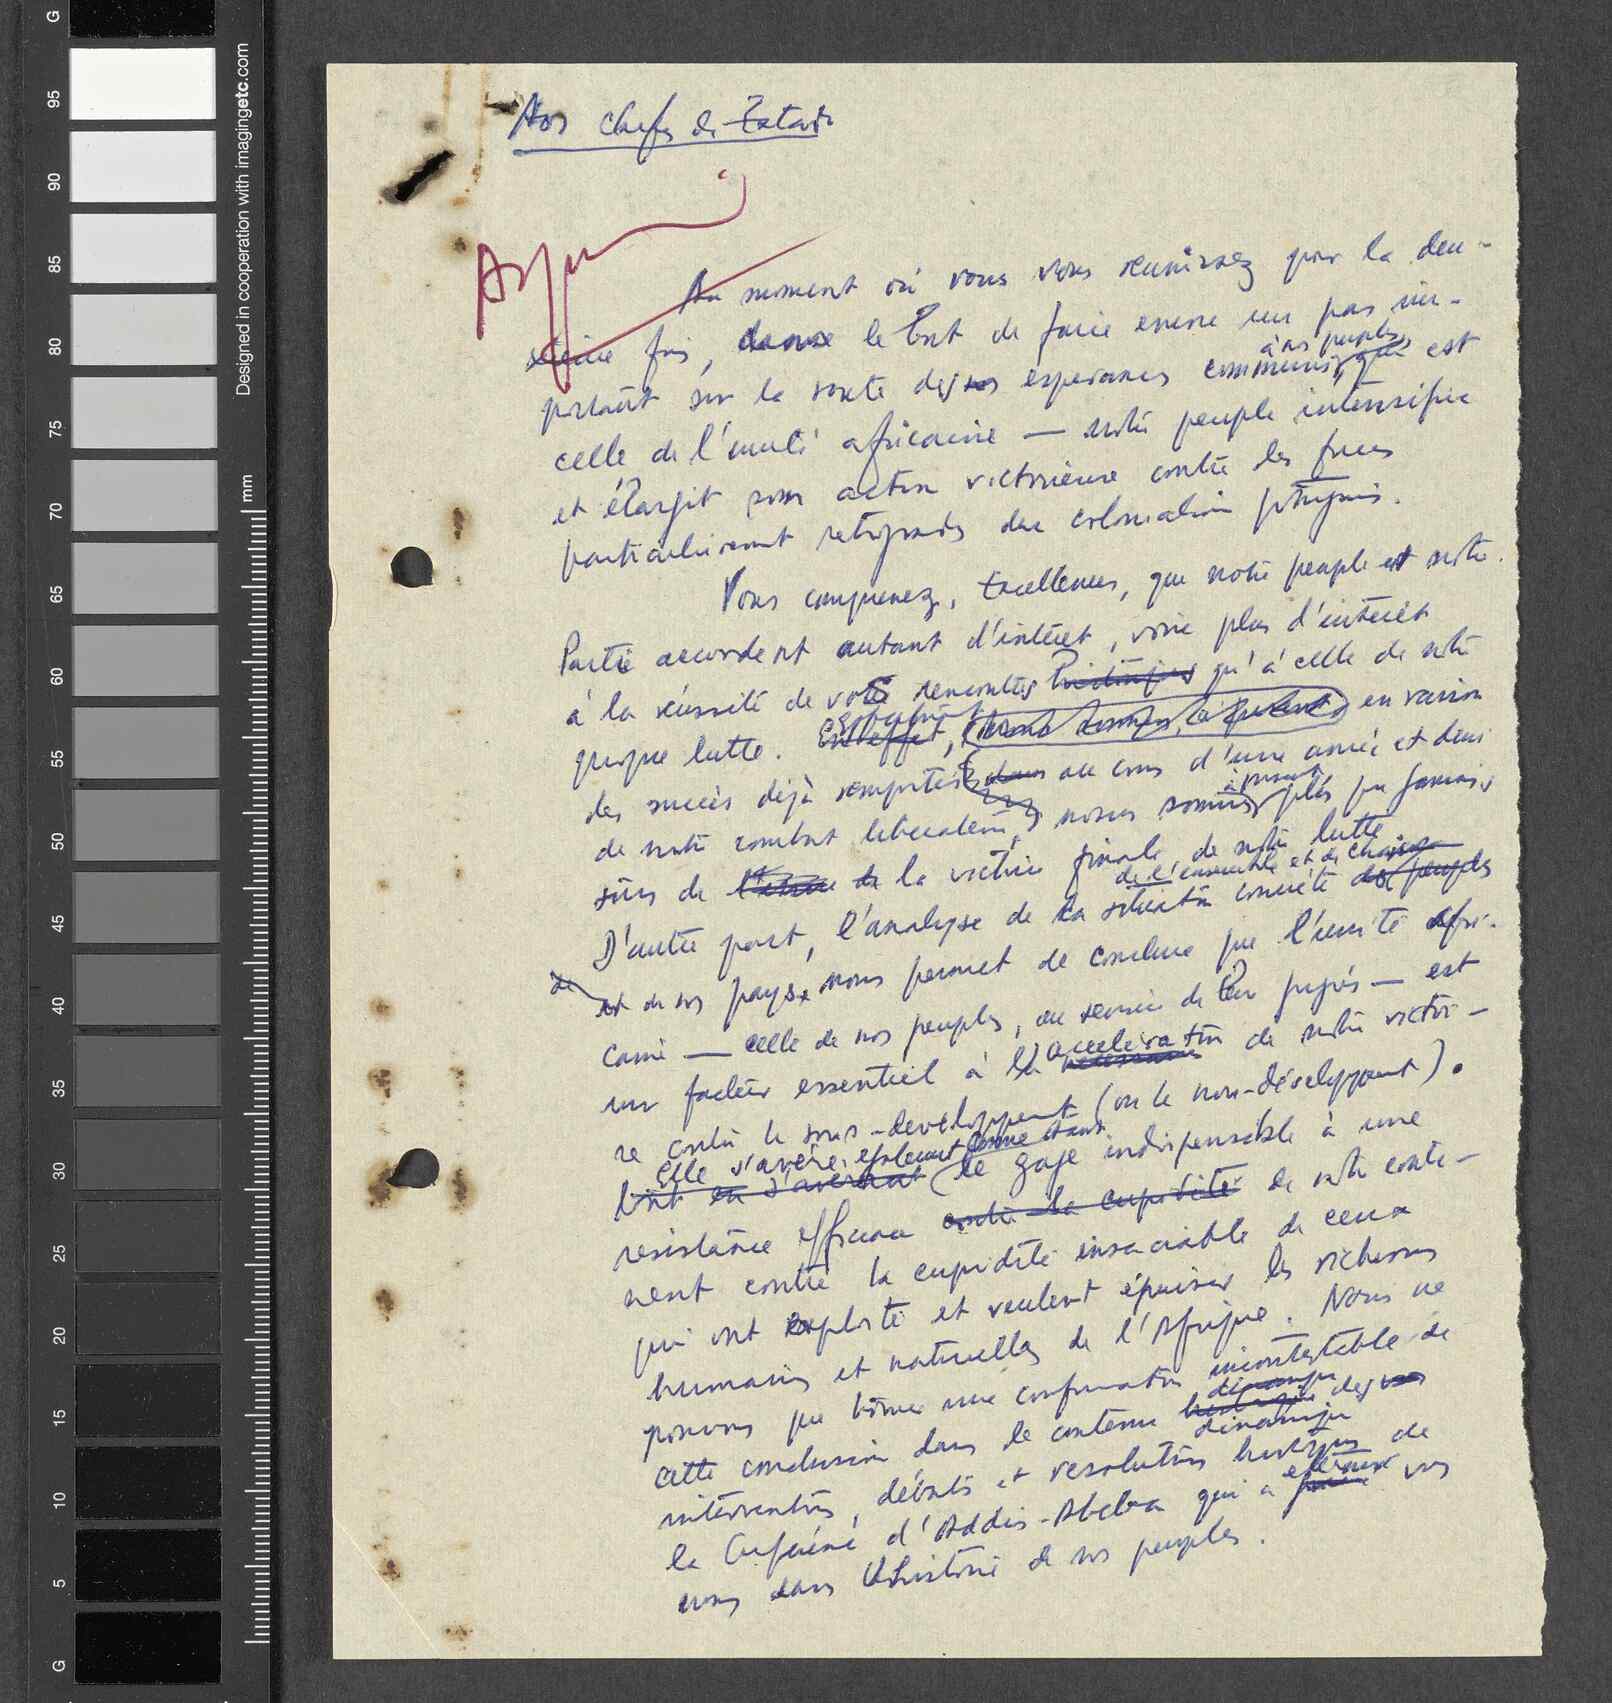 Aos chefes de Estado
Arquivo
Au moment où vous vous reunissez pour la deu-
xième fois, dans le but de faire encore un pas im-
portant sur la route des nos esperances communes à nos peuples, qui est
celle de l'unité africaine — notre peuple intensifie
et élargit son action victorieuse contre les forces
particulièrement retrogrades du colonialisme portugais.
Vous comprenez, Excellences, que notre peuple et notre
Parti accordent autant d'intéret, voire plus d'intéret
à la réussite de votre rencontre historique qu'à celle de notre
propre lutte. En effet, en raison
des succès déjà remportés dans au cours d'une année et demi
de notre combat liberateur, nous sommes à présent plus que jamais
sûrs de la victoire finale de notre lutte
D'autre part, l'analyse de la situation concrète de l'ensemble et de chacun des peuples
de et de nos pays, nous permet de conclure que l'unité afri-
caine — celle de nos peuples, au service de leur progrès — est
un facteur essentiel à l'acceleration necessaire de notre victoi-
re contre le sous-developpement (ou le non-développement).
Elle s'avère également comme étant le gage indispensable à une
resistance efficace contre la cupidité de notre conti-
nent contre la cupidité insaciable de ceux
qui ont exploité et veulent épuiser les richesses
humaines et naturelles de l'Afrique. Nous ne
pouvons que trouver une confirmation incontestable de
cette conclusion dans le contenu historique dinamique des nos
interventions, débats et resolutions historiques de
la Conférence d'Addis-Abeba qui a vos
noms dans l'histoire de nos peuples.
G
95
90
85
80
75
70
65
60
55
50
45
40
35
30
25
20
15
10
5
G
mm
Designed in cooperation with imagingetc.com